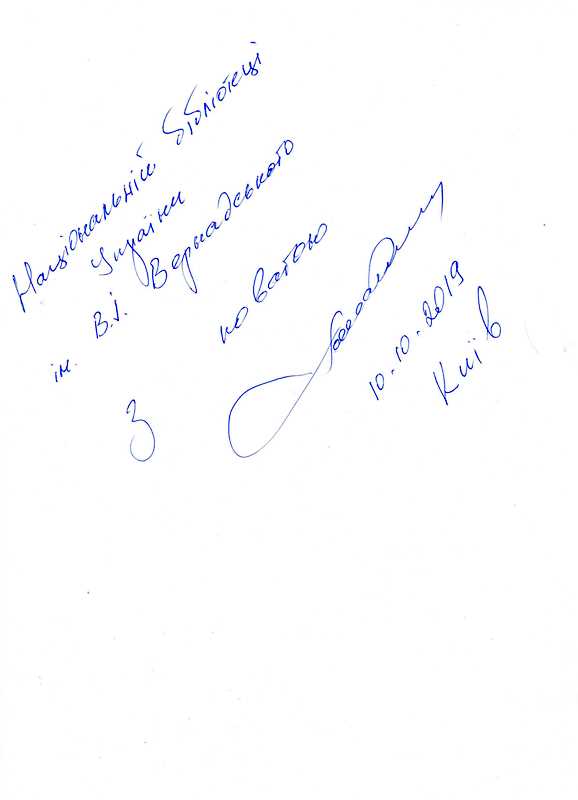 Національній бібліотеці
України
ім. В.І. Вернадського
З повагою
10.10.2019
Київ